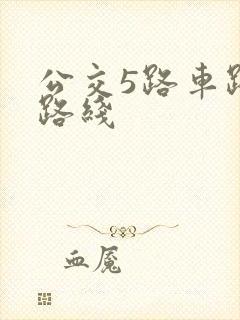 公交5路车路
路线
血魇